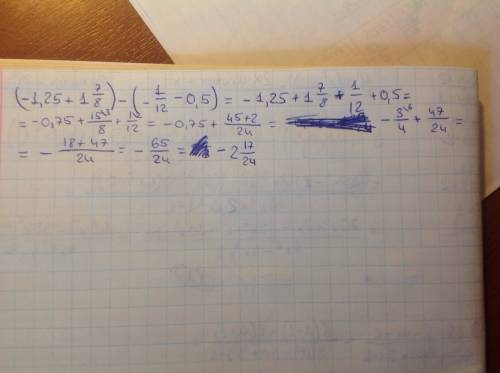 (-1,25 + 1 7/8) - (-1/12 - 0,5) = -1,25 + 1 7/8 + 1/12 + 0,5 =
= -0,75 + 15^3/8 + 1^2/12 = -0,75 + 45+2/24 = -3^6/4 + 47/24 =
= - 18+47/24 = - 65/24 = -2 17/24